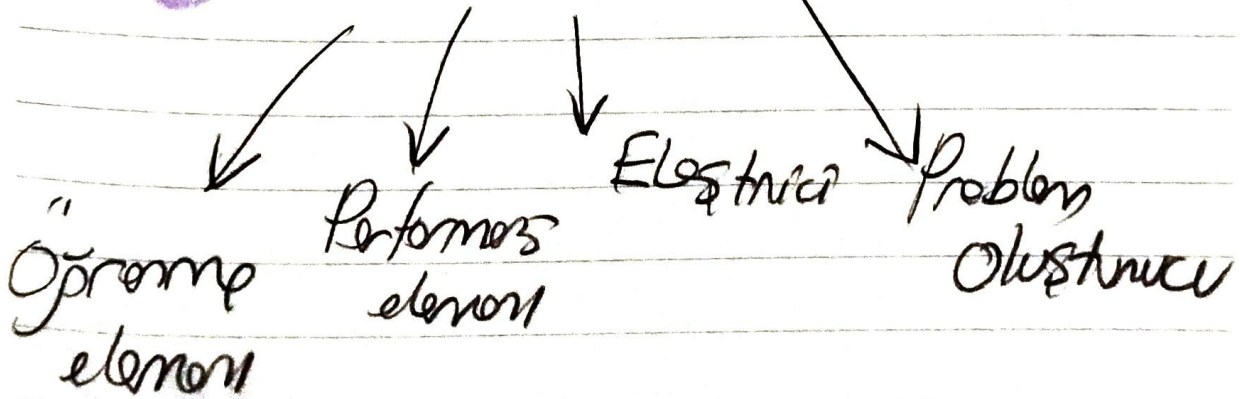 Öğrenme
elemanı
Performans
elemanı
Eleştirici
Problem
Oluşturucu